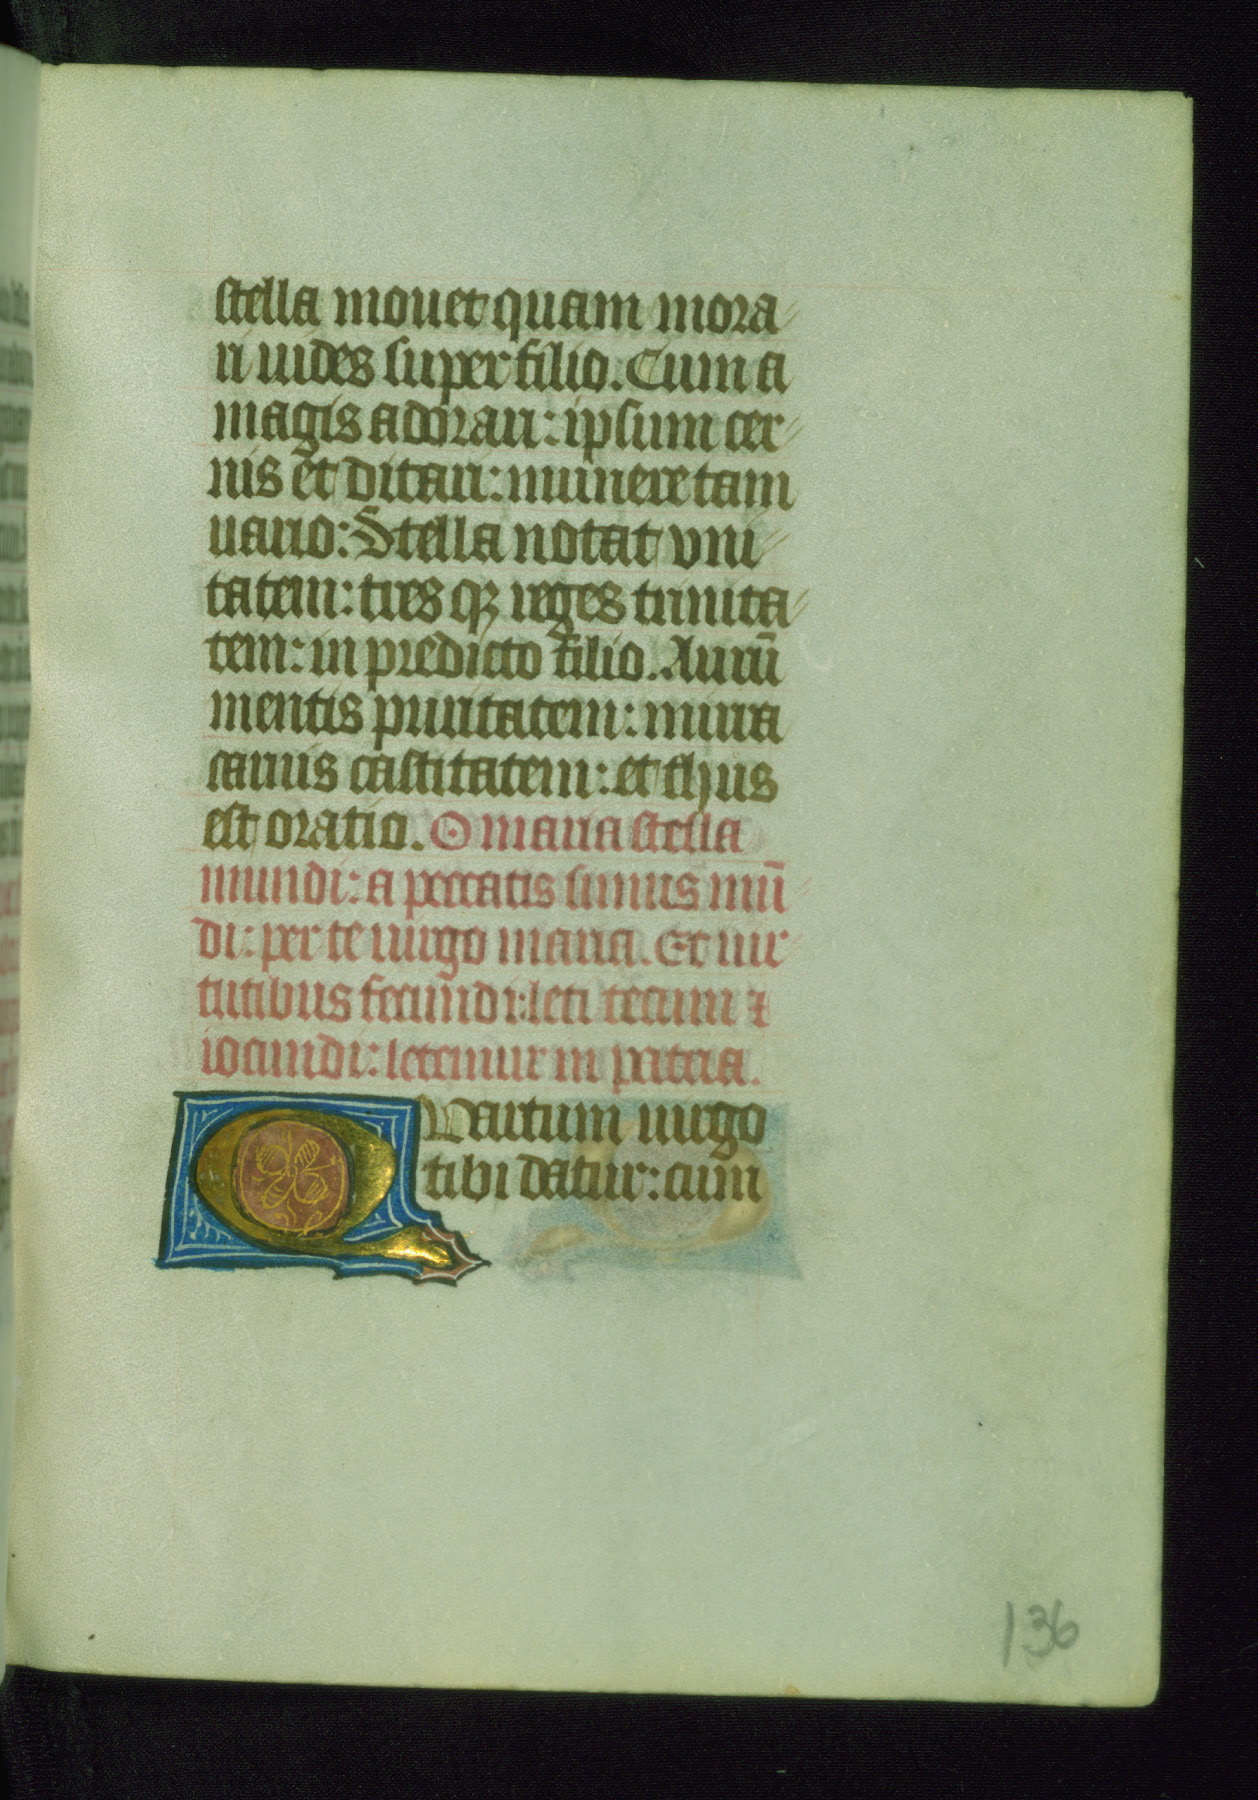 stella mouet quam mora
ri uides super filio. Cum a
magis adorari: ipsum cer
nis et ditari: munere tam
uario: Stella notat vni
tatem: tres qꝫ reges trinita
tem: in predicto filio. Aurū
mentis puritatem: mirra
carnis castitatem: et thus
est oratio. O maria stella
mundi: a peccatis simus mū
di: per te uirgo maria. Et uir
tutibus fecundi: leti tecum ⁊
iocundi: letemur in patria.
Quartum uirgo
tibi datur: cum
136